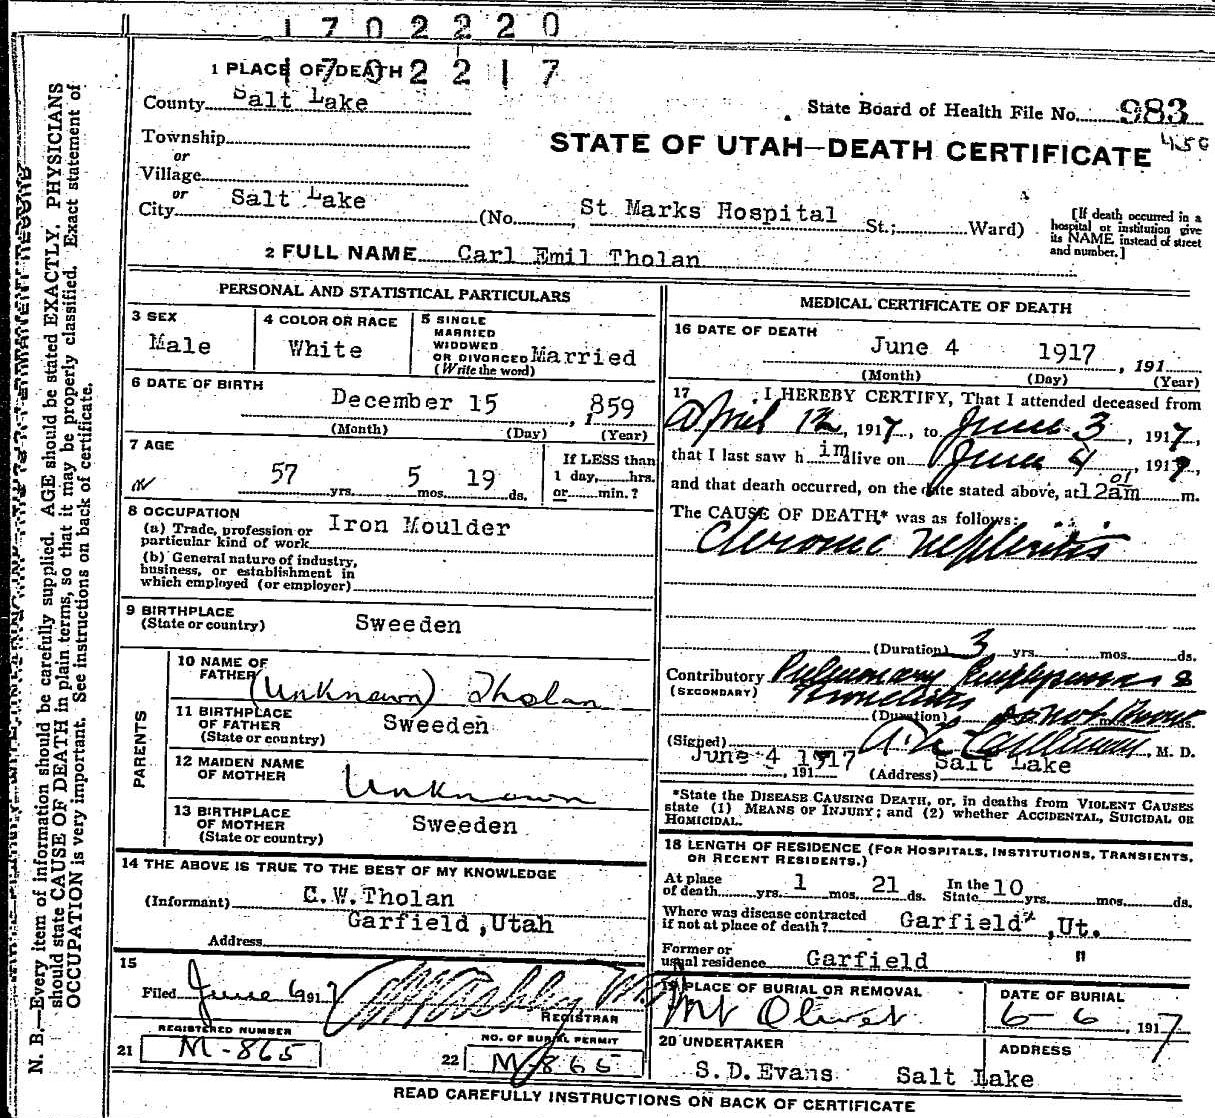 1702220
1702217
1 PLACE OF DEATH
County Salt Lake
State Board of Health File No. 983
450
Township
or
Village
or
City Salt Lake (No. St Marks Hospital St.; Ward)
STATE OF UTAH—DEATH CERTIFICATE
[If death occurred in a
hospital or institution give
its NAME instead of street
and number.]
2 FULL NAME Carl Emil Tholan
PERSONAL AND STATISTICAL PARTICULARS
3 SEX
Male
4 COLOR OR RACE
White
5 SINGLE
MARRIED
WIDOWED
OR DIVORCED Married
(Write the word)
6 DATE OF BIRTH
December 15, 1859
(Month) (Day) (Year)
7 AGE
57 yrs. 5 mos. 19 ds.
If LESS than
1 day, hrs.
or min.?
8 OCCUPATION
(a) Trade, profession or
particular kind of work Iron Moulder
(b) General nature of industry,
business, or establishment in
which employed (or employer)
9 BIRTHPLACE
(State or country) Sweeden
PARENTS
10 NAME OF
FATHER (Unknown) Tholan
11 BIRTHPLACE
OF FATHER
(State or country) Sweeden
12 MAIDEN NAME
OF MOTHER Unknown
13 BIRTHPLACE
OF MOTHER
(State or country) Sweeden
14 THE ABOVE IS TRUE TO THE BEST OF MY KNOWLEDGE
(Informant) C.W.Tholan
Garfield ,Utah
Address
15
Filed June 6 1917
REGISTRAR
REGISTERED NUMBER
21 M-865
NO. OF BURIAL PERMIT
22 M-865
MEDICAL CERTIFICATE OF DEATH
16 DATE OF DEATH
June 4 1917, 191
(Month) (Day) (Year)
17 I HEREBY CERTIFY, That I attended deceased from
April 12, 1917, to June 3, 1917,
that I last saw him alive on June 4, 1917,
and that death occurred, on the date stated above, at 12 01 am m.
The CAUSE OF DEATH* was as follows:
Chronic Nephritis
(Duration) 3 yrs. mos. ds.
Contributory Pulmonary Emphysema &
(SECONDARY) Bronchitis
(Duration) do not know mos. ds.
(Signed) M. D.
June 4 1917, 191 (Address) Salt Lake
*State the DISEASE CAUSING DEATH, or, in deaths from VIOLENT CAUSES
state (1) MEANS OF INJURY; and (2) whether ACCIDENTAL, SUICIDAL OR
HOMICIDAL.
18 LENGTH OF RESIDENCE (FOR HOSPITALS, INSTITUTIONS, TRANSIENTS,
OR RECENT RESIDENTS.)
At place
of death yrs. 1 mos. 21 ds. In the
State 10 yrs. mos. ds.
Where was disease contracted
if not at place of death? Garfield ,Ut.
Former or
usual residence Garfield "
19 PLACE OF BURIAL OR REMOVAL
Mt Olivet
DATE OF BURIAL
6-6, 1917
20 UNDERTAKER
S.D.Evans
ADDRESS
Salt Lake
READ CAREFULLY INSTRUCTIONS ON BACK OF CERTIFICATE
N. B.—Every item of information should be carefully supplied. AGE should be stated EXACTLY. PHYSICIANS
should state CAUSE OF DEATH in plain terms, so that it may be properly classified. Exact statement of
OCCUPATION is very important. See instructions on back of certificate.